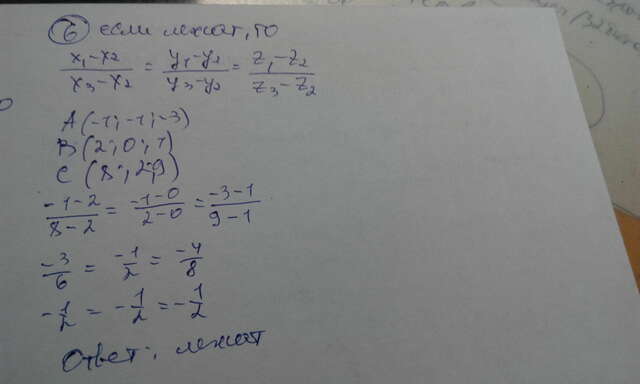 ⑥ если лежат, то
x₁-x₂/x₃-x₂ = y₁-y₂/y₃-y₂ = z₁-z₂/z₃-z₂
A(-1; -1; -3)
B(2; 0; 1)
C (8; 2; 9)
-1-2/8-2 = -1-0/2-0 = -3-1/9-1
-3/6 = -1/2 = -4/8
-1/2 = -1/2 = -1/2
Ответ: лежат